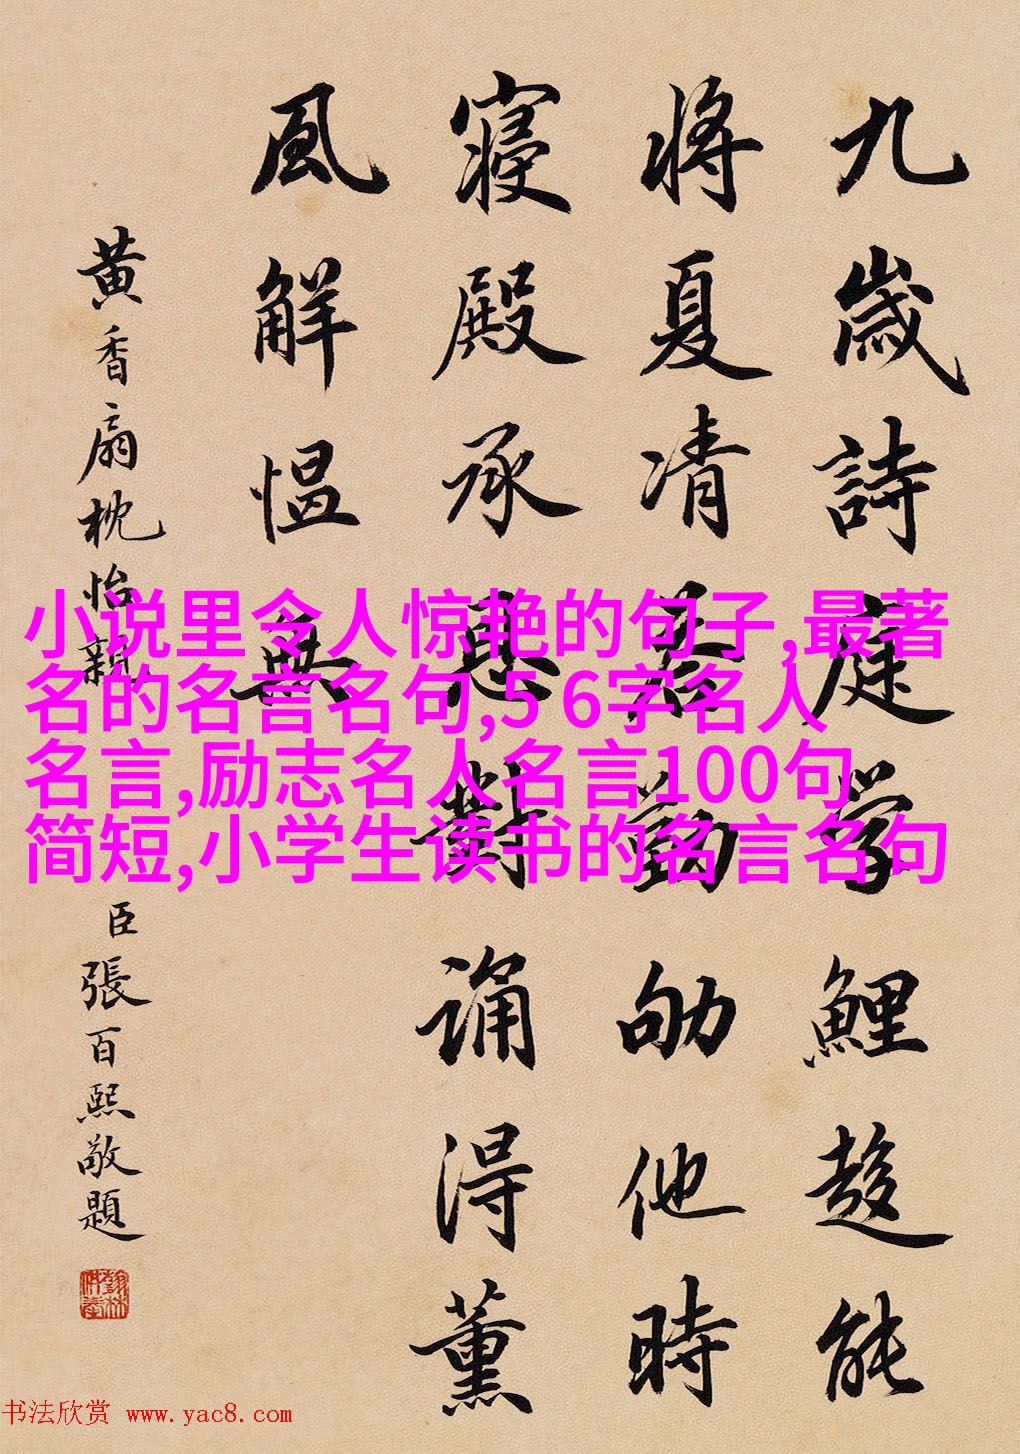 九歲詩庭學鯉趍能
將夏凊荅勤劬他時
寢殿承恩對誦得薰
風解慍無
黃香扇枕怡親
臣張百熙敬題
小说里令人惊艳的句子,最著
名的名言名句,5 6字名人
名言,励志名人名言100句
简短,小学生读书的名言名句
书法欣赏 www.yac8.com